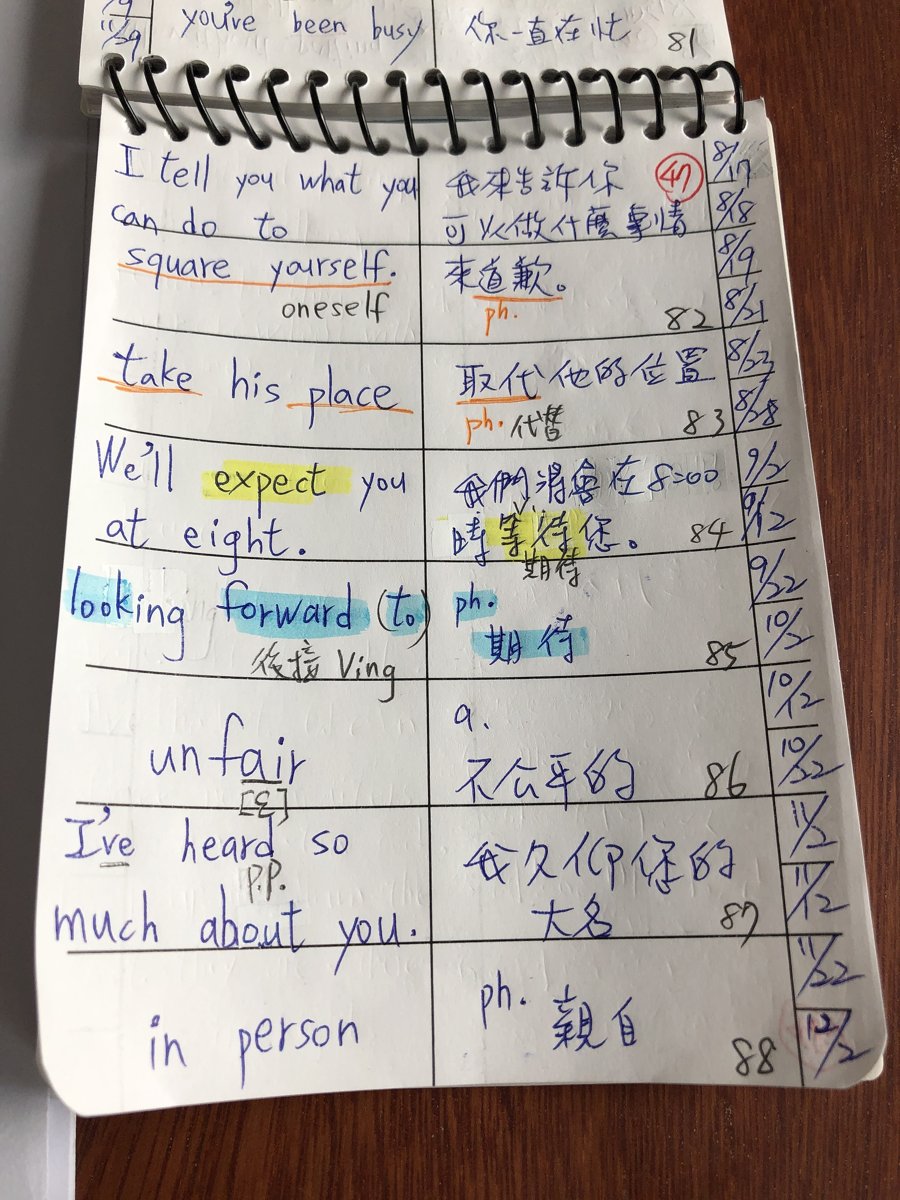 11/29
you've been busy
你一直在忙
81
I tell you what you
can do to
square yourself.
oneself
我來告訴你
47
可以做什麼事情
來道歉。
ph.
82
take his place
取代他的位置
ph. 代替
83
We'll expect you
at eight.
我們將會在8:00
v.
時等待您。
期待
84
looking forward (to)
後接 Ving
ph.
期待
85
unfair
[ɛ]
a.
不公平的
86
I've heard so
P.P.
much about you.
我久仰您的
大名
87
in person
ph.
親自
88
8/17
8/18
8/19
8/21
8/23
8/28
9/2
9/12
9/22
10/2
10/12
10/22
11/2
11/12
11/22
12/2